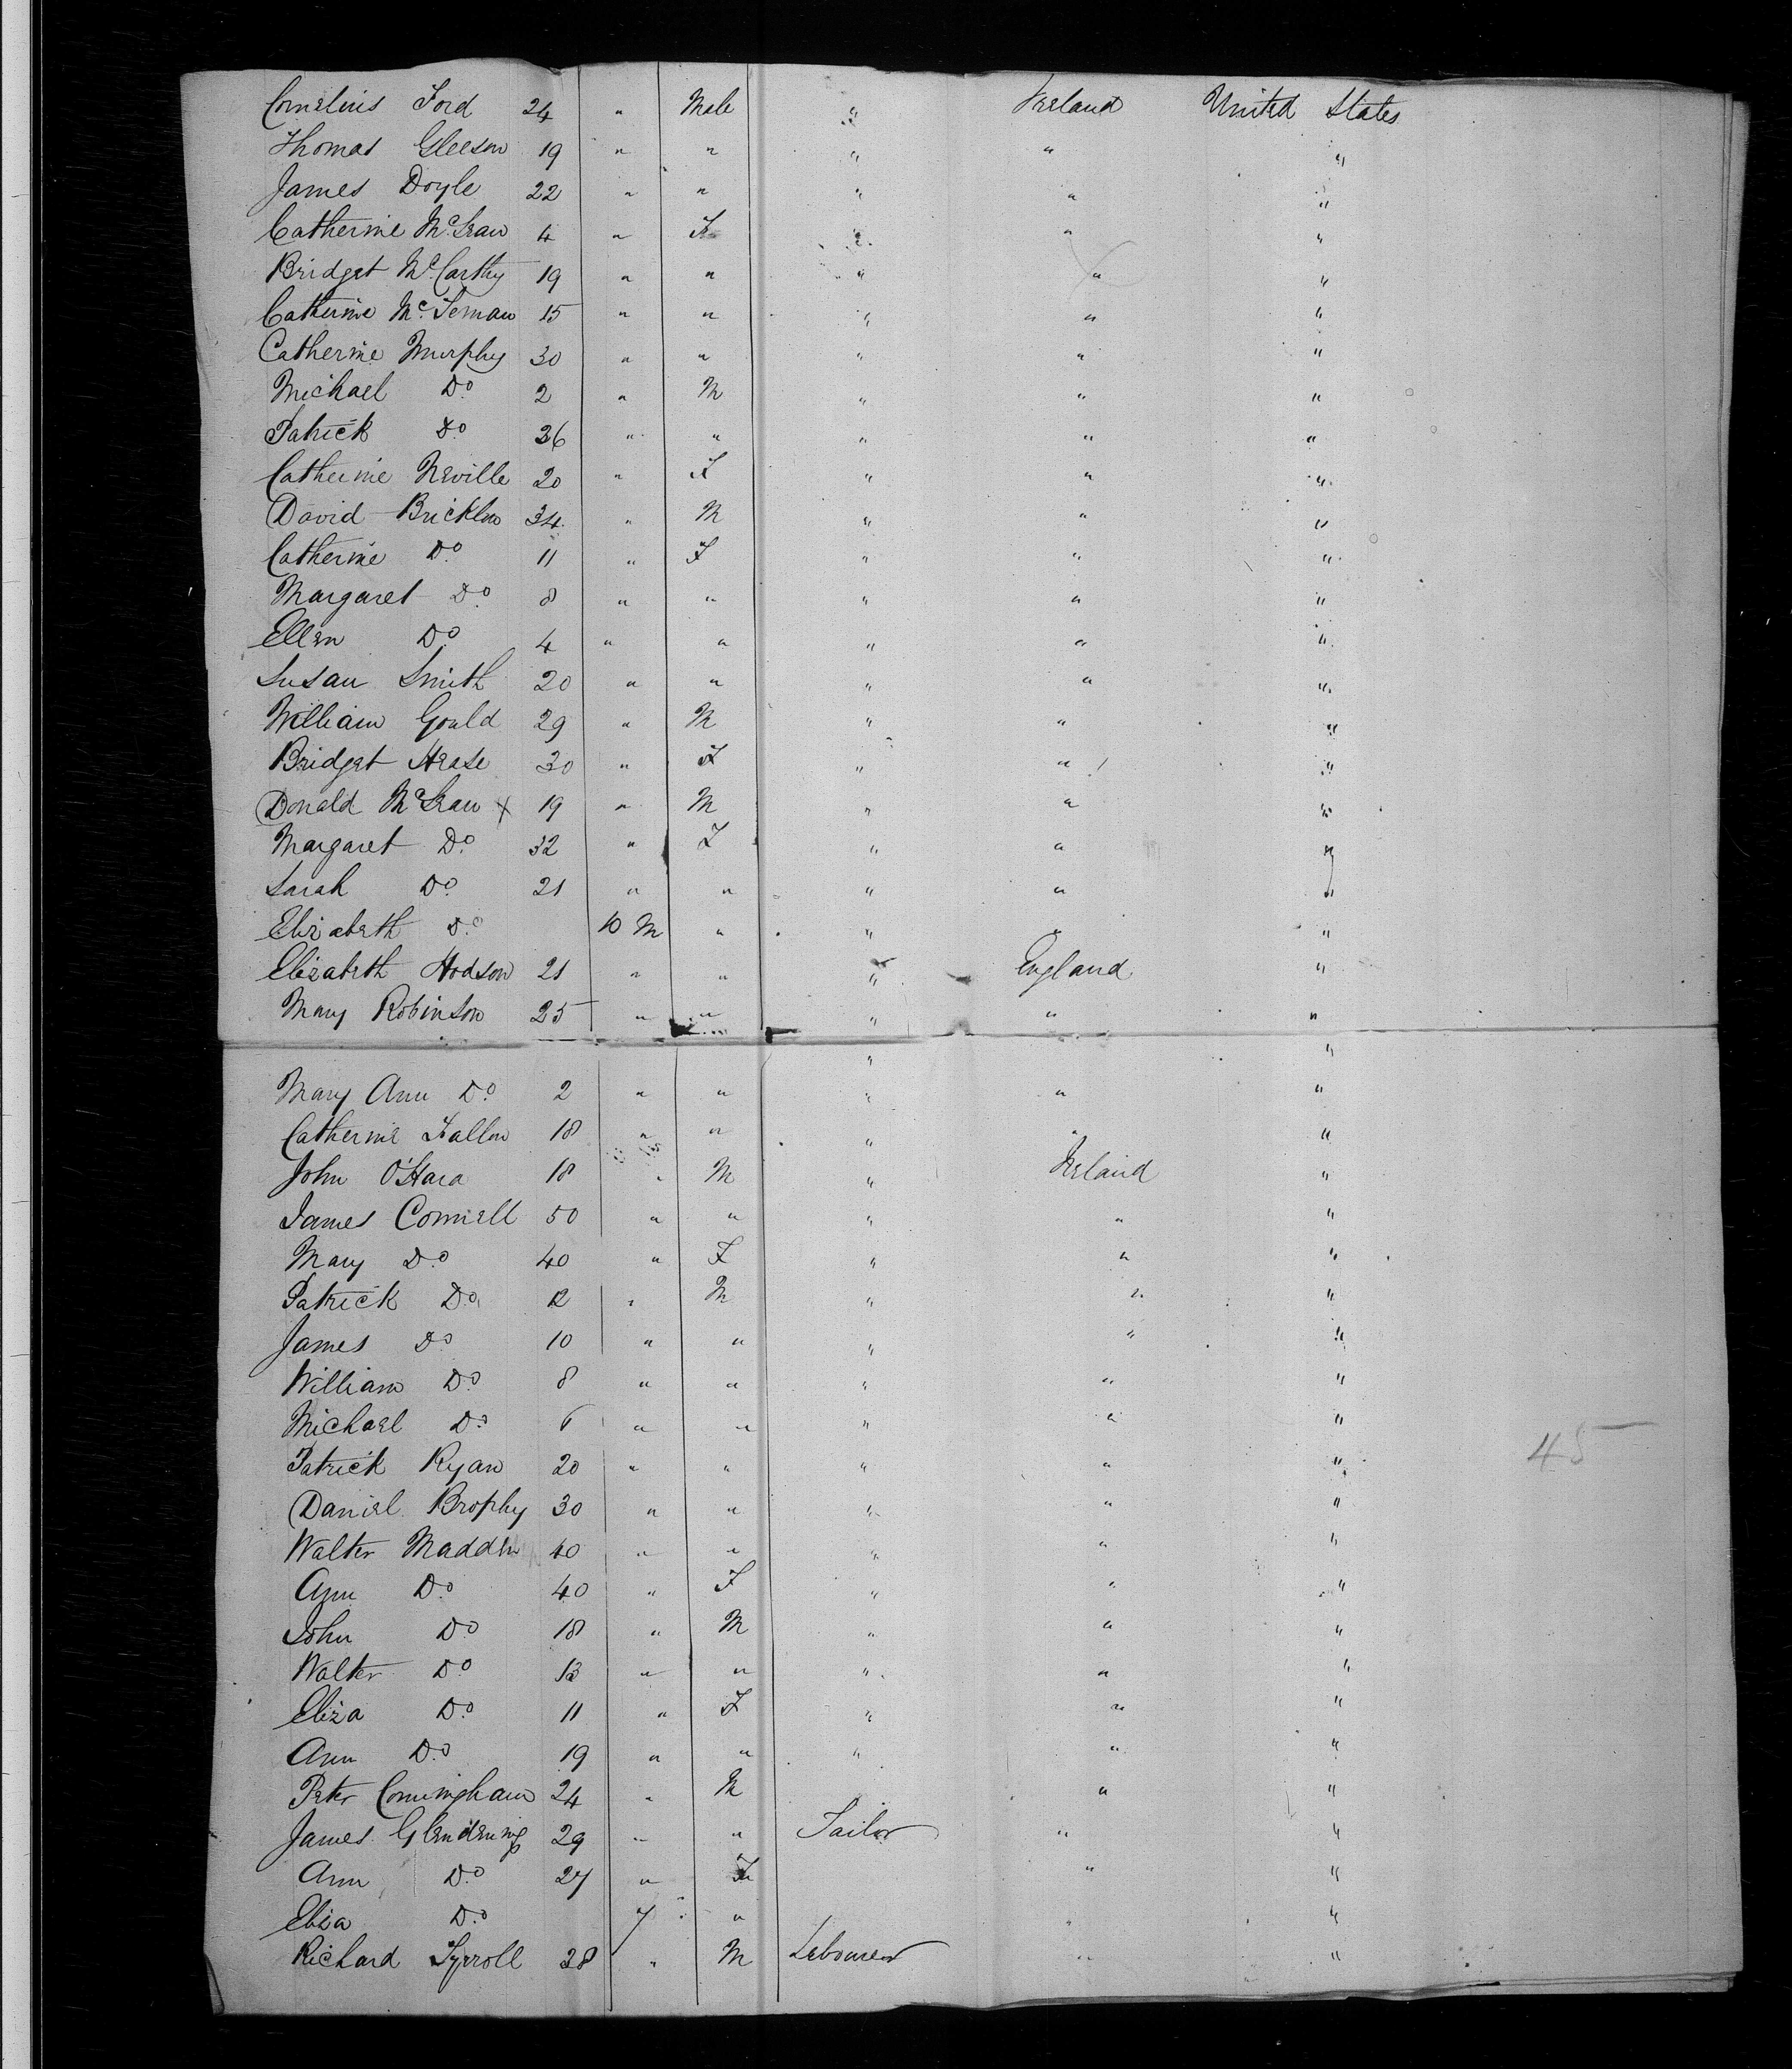 Cornelius Ford 24 " Male " Ireland United States
Thomas Gleeson 19 " " " " "
James Doyle 22 " " " " "
Catherine McGrau 4 " F " " "
Bridget McCarthy 19 " " " " "
Catherine McTernau 15 " " " " "
Catherine Murphy 30 " " " " "
Michael Do 2 " M " " "
Patrick Do 36 " " " " "
Catherine Neville 20 " F " " "
David Bricklen 34 " M " " "
Catherine Do 11 " F " " "
Margaret Do 8 " " " " "
Ellen Do 4 " " " " "
Susan Smith 20 " " " " "
William Gould 29 " M " " "
Bridget Hease 30 " F " " "
Donald McGrau x 19 " M " " "
Margaret Do 32 " F " " "
Sarah Do 21 " " " " "
Elizabeth Do 10 M " " " "
Elizabeth Hodson 21 " " " England "
Mary Robinson 25 " " " " "
" "
Mary Ann Do 2 " " " " "
Catherine Fallon 18 " " " " "
John O'Hara 18 " M " Ireland "
James Connell 50 " " " " "
Mary Do 40 " F " " "
Patrick Do 12 " M " " "
James Do 10 " " " " "
William Do 8 " " " " "
Michael Do 6 " " " " "
Patrick Ryan 20 " " " " " 45
Daniel Brophy 30 " " " " "
Walter Madden 40 " " " " "
Ann Do 40 " F " " "
John Do 18 " M " " "
Walter Do 13 " " " " "
Eliza Do 11 " F " " "
Ann Do 19 " " " " "
Peter Conningham 24 " M " "
James Glendening 29 " " Tailor " "
Ann Do 27 " F " "
Eliza Do 7 " " "
Richard Tyrroll 38 " M Labourer " "